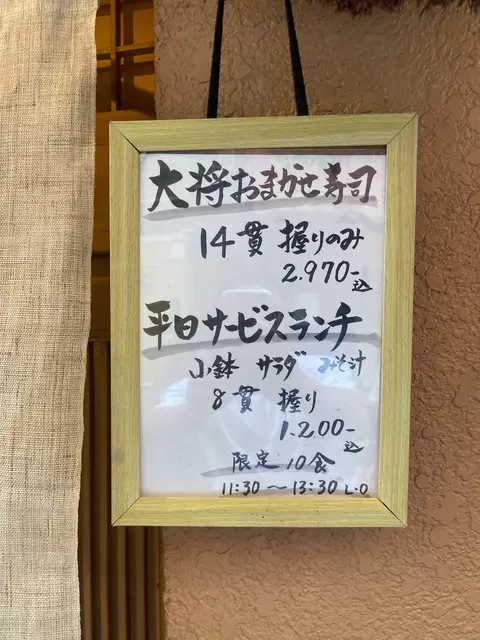 大将おまかせ寿司
14貫 握りのみ
2.970-込
平日サービスランチ
小鉢 サラダ みそ汁
8貫 握り
1.200-込
限定 10食
11:30～13:30 L.O